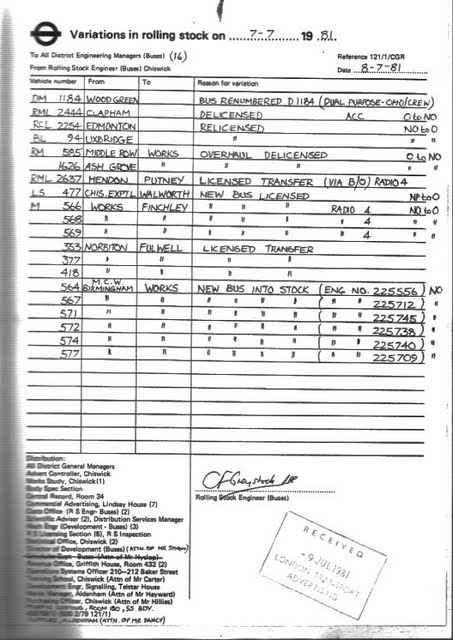 Variations in rolling stock on 7-7 1981.
To All District Engineering Managers (Buses) (16)
Reference 121/1/CGR
From Rolling Stock Engineer (Buses) Chiswick
Date 8-7-81
Vehicle number From To Reason for variation
DM 1184 WOOD GREEN BUS RENUMBERED D1184 (DUAL PURPOSE-OMO/CREW)
RML 2444 CLAPHAM DELICENSED ACC O to NO
RCL 2254 EDMONTON RELICENSED NO to O
BL 94 UXBRIDGE " "
RM 595 MIDDLE ROW WORKS OVERHAUL DELICENSED O to NO
1626 ASH GROVE " " " "
RML 2637 HENDON PUTNEY LICENSED TRANSFER (VIA B/O) RADIO 4
LS 477 CHIS. EXPTL WALWORTH NEW BUS LICENSED NP to O
M 566 WORKS FINCHLEY " " " RADIO 4 NO to O
568 " " " " " " 4 " "
569 " " " " " " 4 " "
353 NORBITON FULWELL LICENSED TRANSFER
377 " " " "
418 " " " "
564 M.C.W. BIRMINGHAM WORKS NEW BUS INTO STOCK (ENG NO. 225556) NO
567 " " " " " " ( " " 225712) "
571 " " " " " " ( " " 225745) "
572 " " " " " " ( " " 225738) "
574 " " " " " " ( " " 225740) "
577 " " " " " " ( " " 225709) "
Distribution:
All District General Managers
Advert Controller, Chiswick
Works Study, Chiswick(1)
Body Spec Section
Central Record, Room 34
Commercial Advertising, Lindsay House (7)
Costs Office (R S Engr- Buses) (2)
Scientific Adviser (2), Distribution Services Manager
Engr (Development - Buses) (3)
Licensing Section (6), R S Inspection
Office, Chiswick (2)
Director of Development (Buses) (ATTN. OF MR
Buses (Attn of Mr Hyslop)
Revenue Office, Griffith House, Room 432 (2)
Operations Systems Officer 210-212 Baker Street
Training School, Chiswick (Attn of Mr Carter)
Engr, Signalling, Telster House
Manager, Aldenham (Attn of Mr Hayward)
Officer, Chiswick (Attn of Mr Hillies)
ROOM 180, 55 BDY.
2/79 121/1)
ALDENHAM (ATTN. OF MR DANCY)
Rolling Stock Engineer (Buses)
RECEIVED
-9 JUL 1981
LONDON TRANSPORT
ADVERTISING